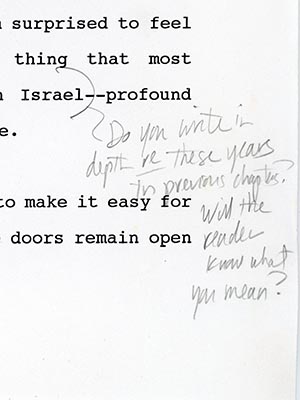 surprised to feel
thing that most
Israel--profound
e.
Do you write in
depth re these years
in previous chapters?
to make it easy for
Will the
doors remain open
reader
know what
you mean?